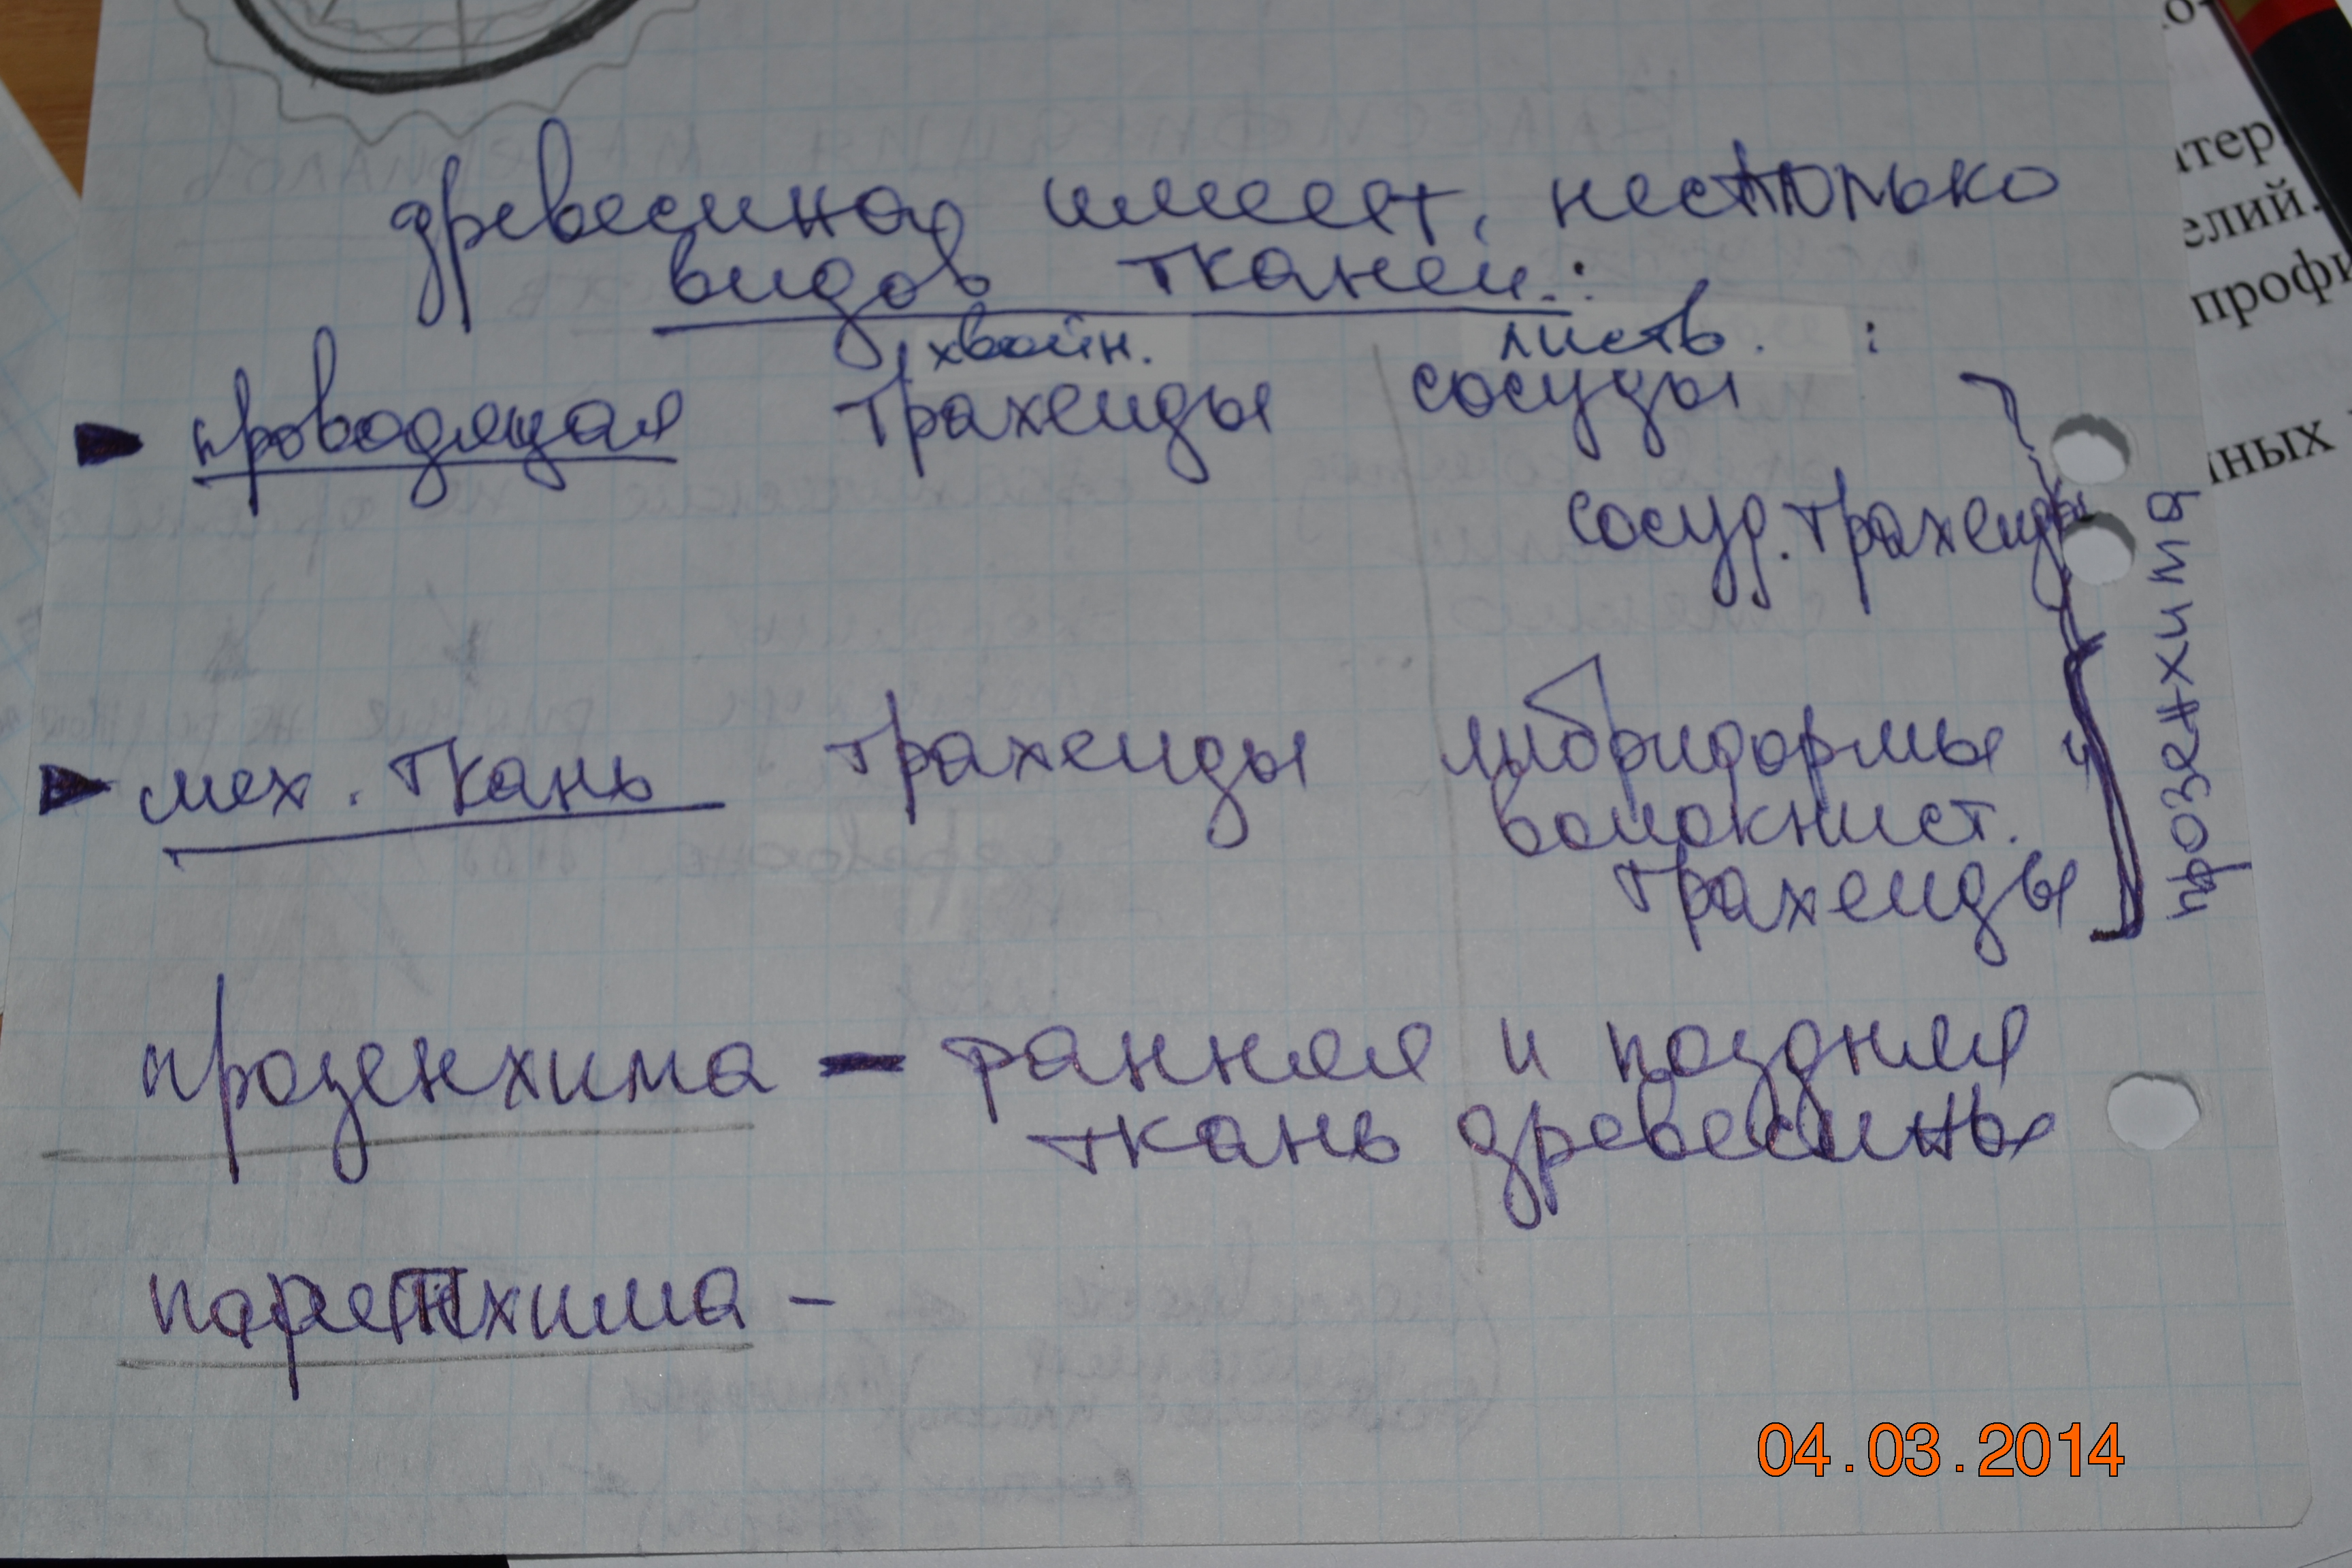 древесина имеет, несколько
видов тканей:
хвойн. листв. :
проводящая трахеиды сосуды
сосуд. трахеиды
мех. ткань трахеиды либриформы и
волокнист.
трахеиды
прозенхимя
прозенхима - ранняя и поздняя
ткань древесины
паренхима -
тер
елий.
профи
нных
04.03.2014